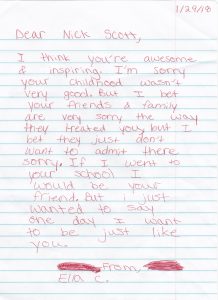 1/29/18
Dear Nick Scott,
I think you're awesome
& inspiring. I'm sorry
your childhood wasn't
very good. But I bet
your friends & family
are very sorry the way
they treated you, but I
bet they just don't
want to admit there
sorry. If I went to
your school I
would be your
friend. But i just
wanted to say
one day I want
to be just like
you.
From,
Ella C.